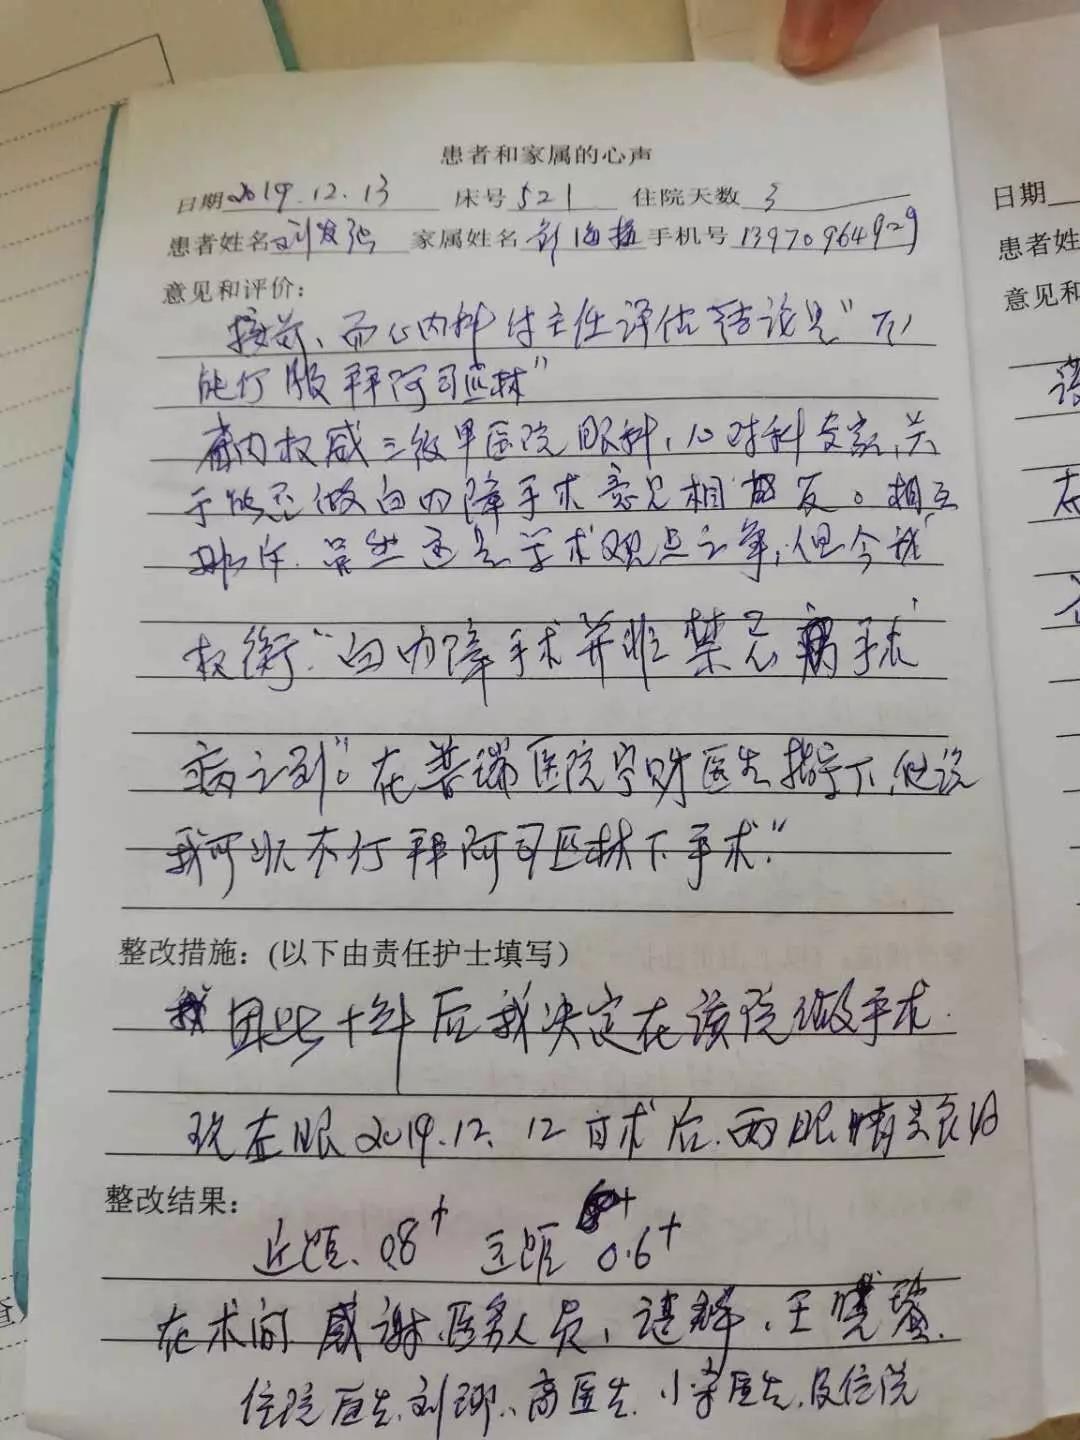 患者和家属的心声
日期2019.12.13 床号521 住院天数3
患者姓名刘发 家属姓名 手机号13970964929
意见和评价：
接前、而心内科付主任评估结论是“不
能行服拜阿司匹林”
省内权威三级甲医院眼科，心内科专家，关
于能否做白内障手术意见相反。相互
虽然这是学术观点之争，但今我
权衡“白内障手术并非禁忌手术
病之列”。在普瑞医院宁财医生指导下，他说
我可以不行拜阿司匹林下手术.”
整改措施：（以下由责任护士填写）
因此十年后我决定在该院做手术.
现左眼2019.12.12日术后.两眼情景良好
整改结果：
近视、0.8+ 远视 0.6+
在术间.感谢.医务人员，谌辉、王
住院医生.刘、高医生.小李医生.及住院
日期
患者姓
意见和